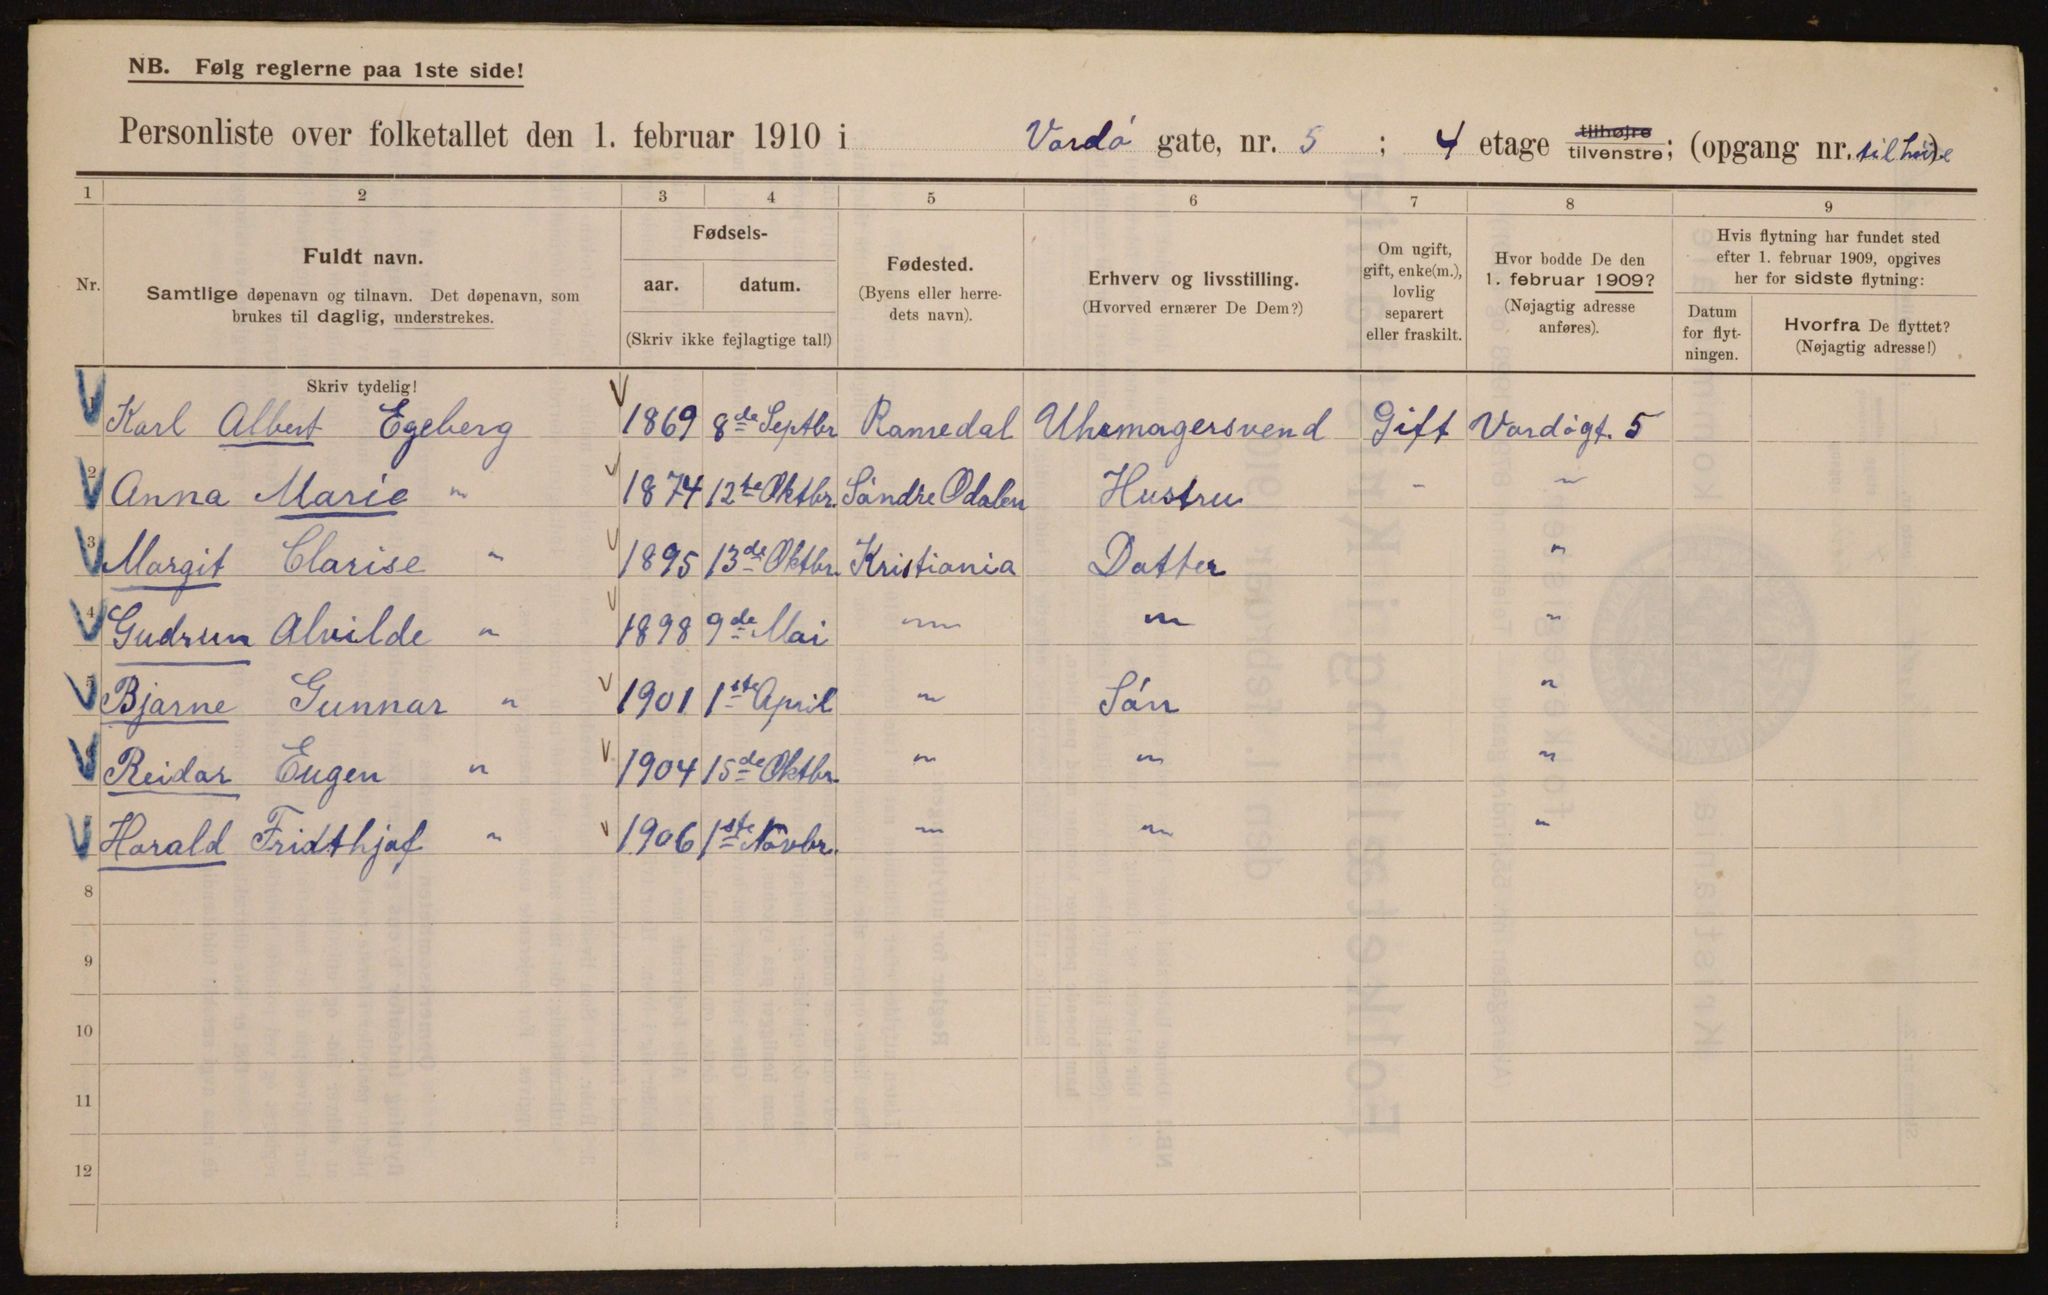 NB. Følg reglerne paa 1ste side!
Personliste over folketallet den 1. februar 1910 i Vardø gate, nr. 5 ; 4 etage tilhøjre tilvenstre; (opgang nr. )
1 2 3 4 5 6 7 8 9
Nr. Fuldt navn. Samtlige døpenavn og tilnavn. Det døpenavn, som brukes til daglig, understrekes.
Fødsels- aar. datum. (Skriv ikke fejlagtige tal!)
Fødested. (Byens eller herredets navn).
Erhverv og livsstilling. (Hvorved ernærer De Dem?)
Om ugift, gift, enke(m.), lovlig separert eller fraskilt.
Hvor bodde De den 1. februar 1909? (Nøjagtig adresse anføres).
Hvis flytning har fundet sted efter 1. februar 1909, opgives her for sidste flytning:
Datum for flytningen. Hvorfra De flyttet? (Nøjagtig adresse!)
Skriv tydelig!
Karl Albert Egeberg 1869 8de Septbr Uhrmagersvend Gift Vardøgt. 5
2 Anna Marie " 1874 12te Oktbr. Søndre Odalen Hustru - "
3 Margit Clarise " 1895 13de Oktbr. Kristiania Datter "
4 Gudrun Alvilde " 1898 9de Mai " " "
5 Bjarne Gunnar " 1901 1ste April " Søn "
Reidar Eugen " 1904 15de Oktbr. " " "
Harald Fridthjof " 1906 1ste Novbr. " " "
8
9
10
11
12